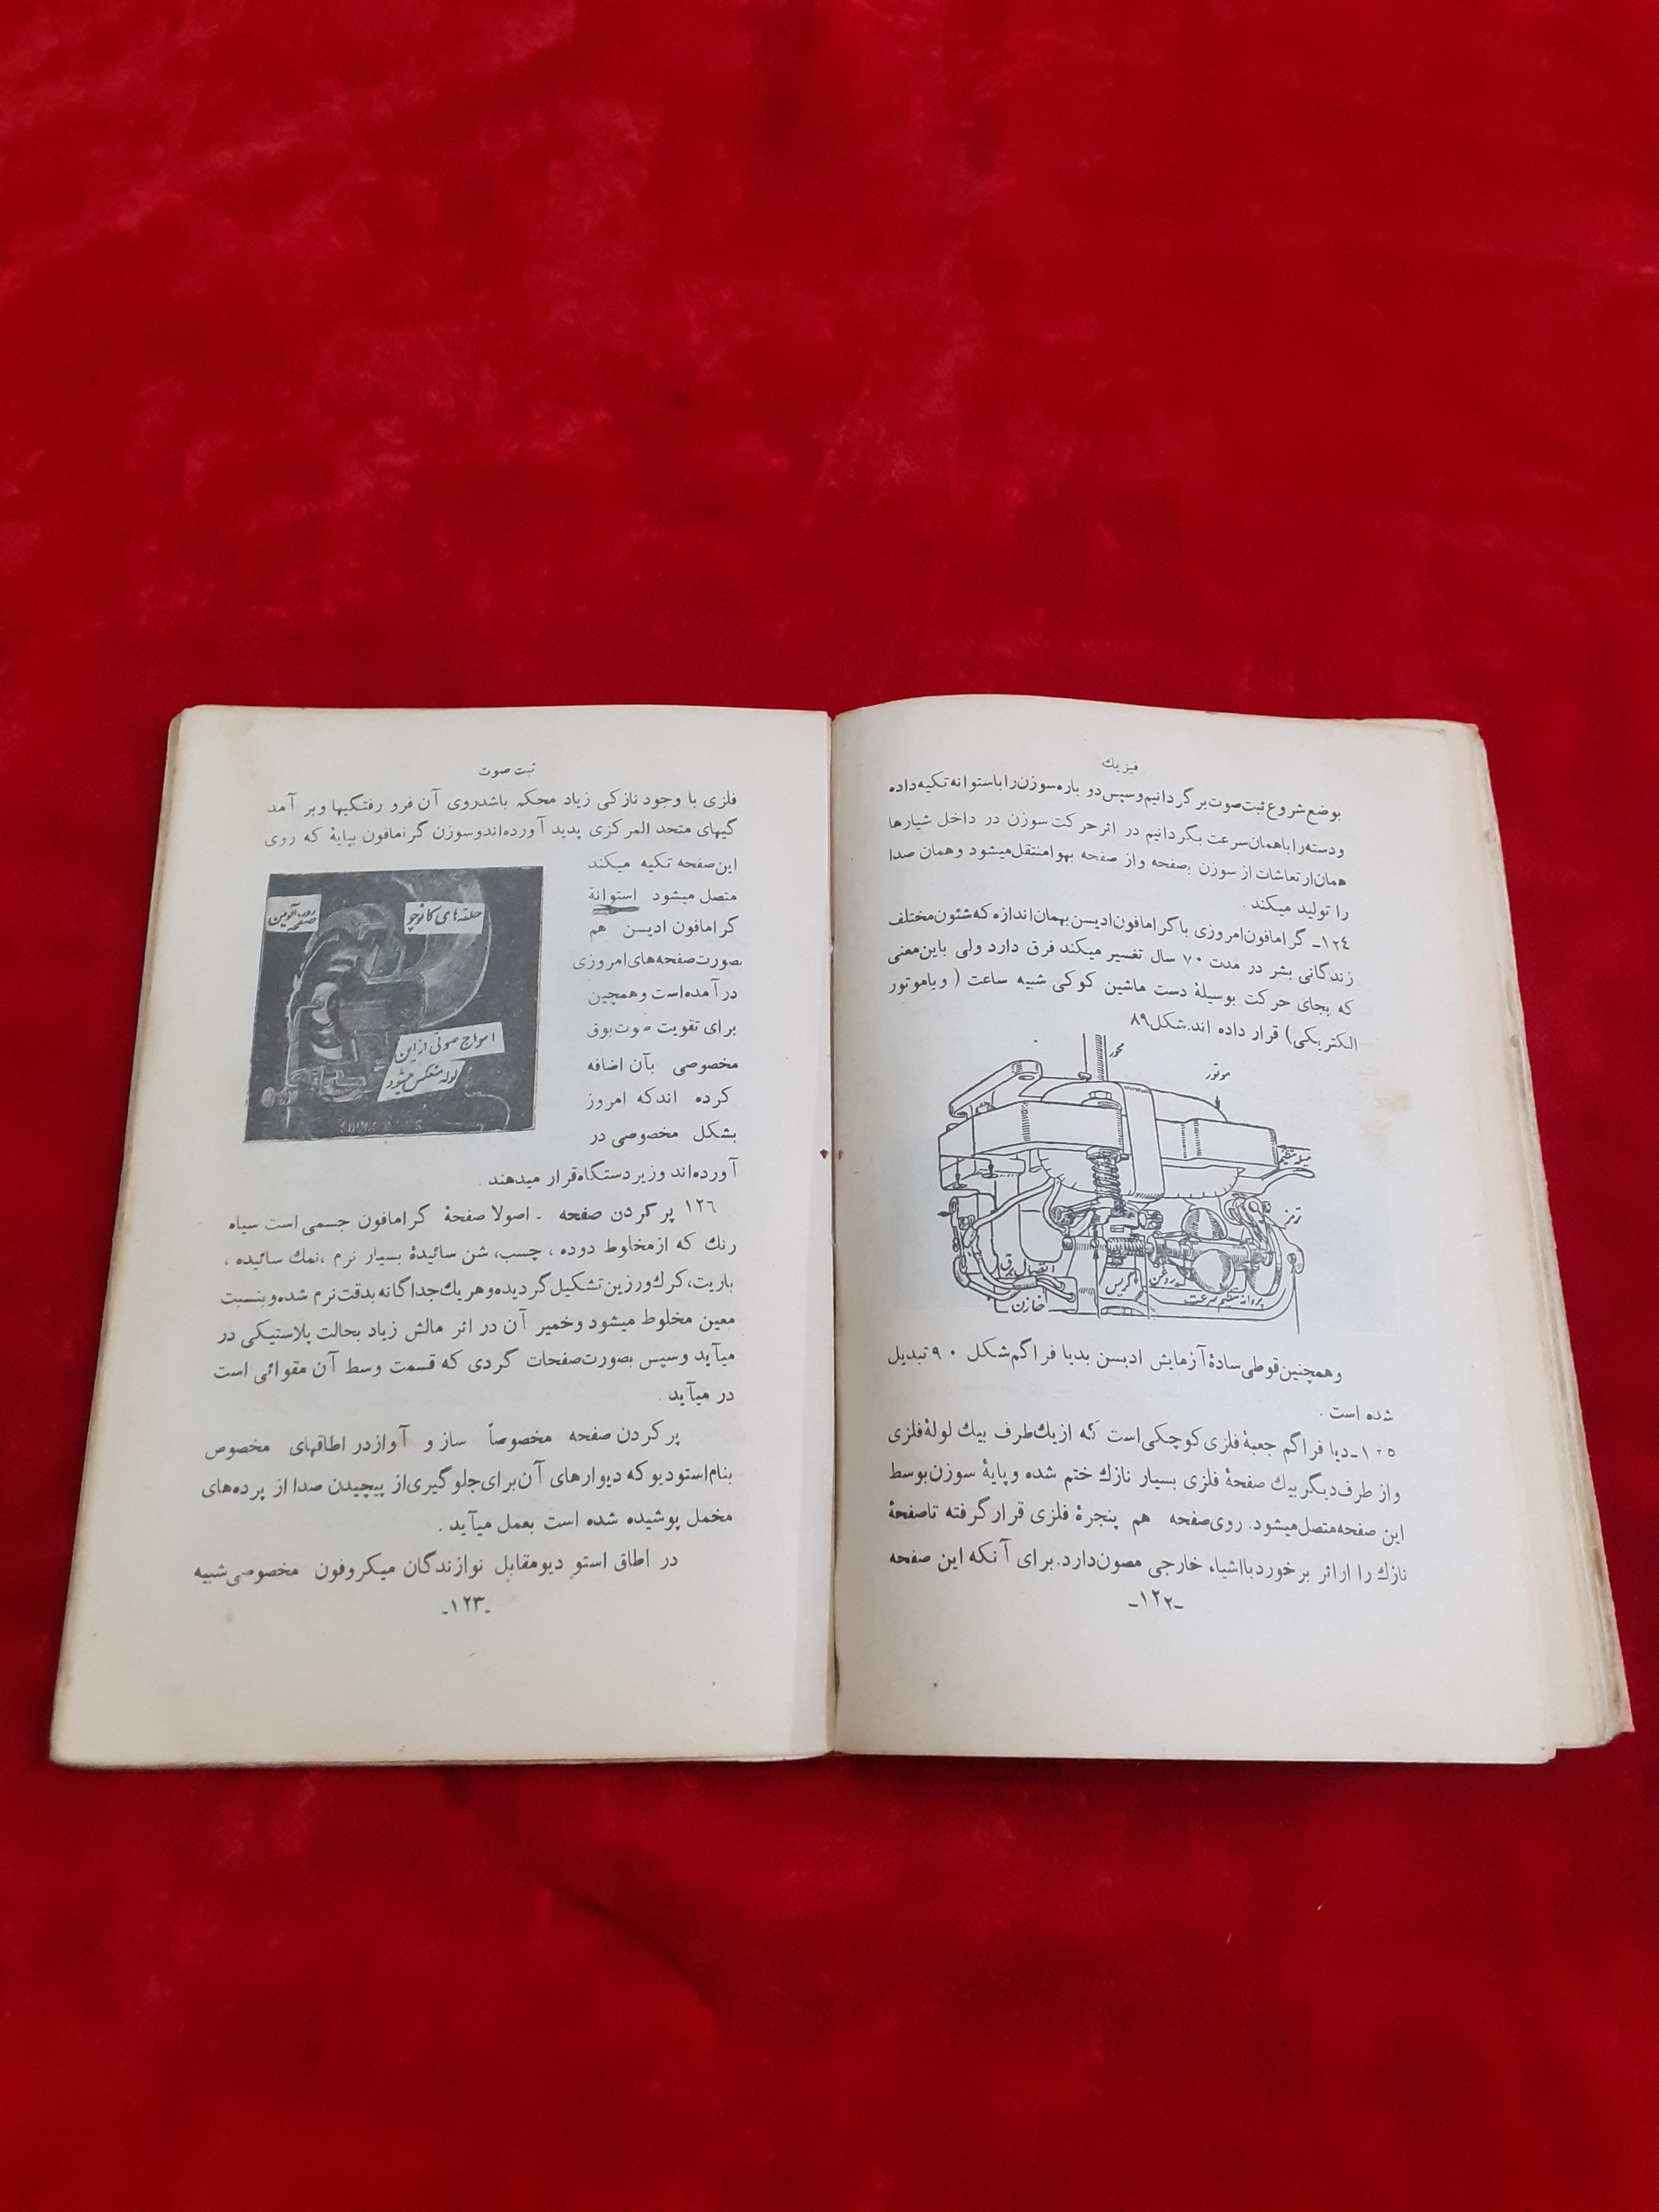 فیزیك
بوضع شروع ثبت صوت برگردانیم وسپس دو باره سوزن را باستوانه تکیه داده
ودسته را باهمان سرعت بگردانیم در اثر حرکت سوزن در داخل شیارها
همان ارتعاشات از سوزن بصفحه واز صفحه بهوا منتقل میشود وهمان صدا
را تولید میکند .
۱۲٤ـ گرامافون امروزی با گرامافون ادیسن بهمان اندازه که شئون مختلف
زندگانی بشر در مدت ۷۰ سال تغسیر میکند فرق دارد ولی باین معنی
که بجای حرکت بوسیلهٔ دست ماشین کوکی شبیه ساعت ( ویاموتور
الکتریکی) قرار داده اند.شکل ۸۹
محور
موتور
میله تنظیم
ترمز
اتصال برق
گریس
روغن
پروانه تنظیم سرعت
خازن
وهمچنین قوطی سادهٔ آزمایش ادیسن بدیا فراگم شکل ۹۰ تبدیل
شده است .
۱۲٥ـ دیا فراگم جعبهٔ فلزی کوچکی است که از یك طرف بیك لولهٔ فلزی
واز طرف دیگر بیك صفحهٔ فلزی بسیار نازك ختم شده وپایهٔ سوزن بوسط
این صفحه متصل میشود. روی صفحه هم پنجرهٔ فلزی قرار گرفته تا صفحهٔ
نازك را از اثر برخورد با اشیاء خارجی مصون دارد. برای آنکه این صفحه
-۱۲۲-
ثبت صوت
فلزی با وجود نازکی زیاد محکم باشد روی آن فرو رفتگیها وبر آمد
گیهای متحد المرکزی پدید آورده‌اند وسوزن گرامافون بپایهٔ که روی
این صفحه تکیه میکند
متصل میشود استوانهٔ
گرامافون ادیسن هم
بصورت صفحه‌های امروزی
در آمده است وهمچین
برای تقویت صوت بوق
مخصوصی بآن اضافه
کرده اند که امروز
بشکل مخصوصی در
حلقه های کائوچو
صفحه
امواج صوتی از این
لوله منعکس میشود
آورده‌اند وزیر دستگاه قرار میدهند .
۱۲٦ پر کردن صفحه ـ اصولا صفحهٔ گرامافون جسمی است سیاه
رنك که از مخلوط دوده ، چسب، شن سائیدهٔ بسیار نرم ،نمك سائیده ،
باریت، کرك ورزین تشکیل گردیده وهر یك جداگانه بدقت نرم شده و بنسبت
معین مخلوط میشود وخمیر آن در اثر مالش زیاد بحالت پلاستیکی در
میآید وسپس بصورت صفحات گردی که قسمت وسط آن مقوائی است
در میآید .
پر کردن صفحه مخصوصاً ساز و آواز در اطاقهای مخصوص
بنام استودیو که دیوارهای آن برای جلوگیری از پیچیدن صدا از پرده‌های
مخمل پوشیده شده است بعمل میآید .
در اطاق استو دیو مقابل نوازندگان میکروفون مخصوصی شبیه
-۱۲۳-